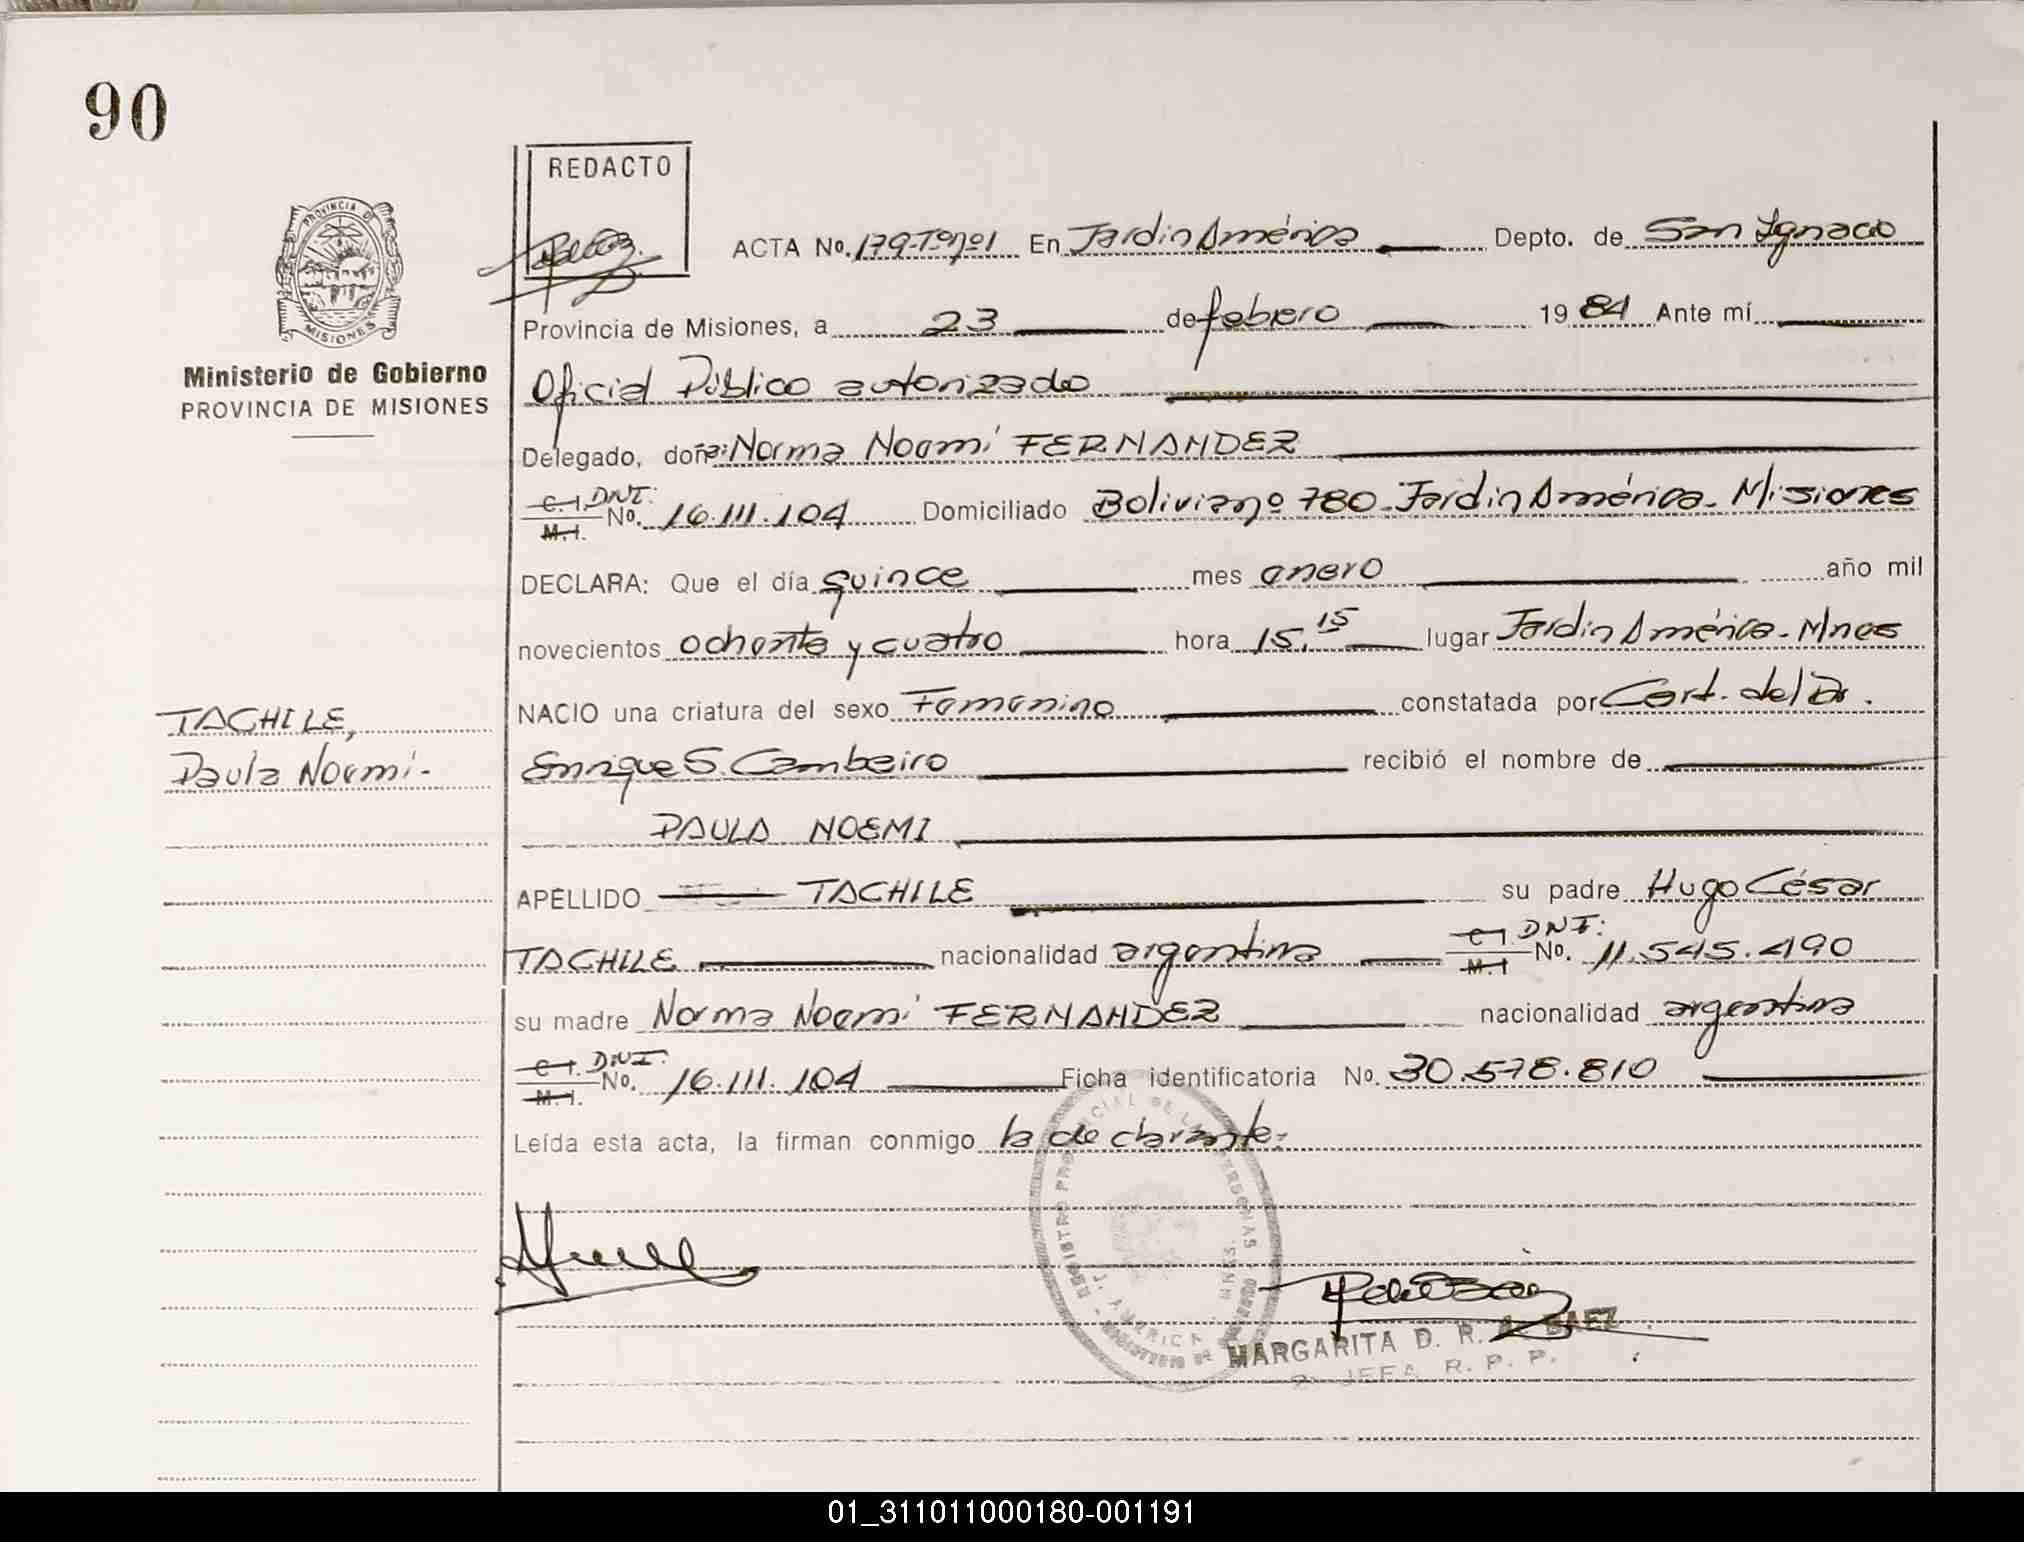 90
REDACTO
PROVINCIA DE
MISIONES
Ministerio de Gobierno
PROVINCIA DE MISIONES
ACTA No. 179-Tº nº 1 En Jardin América Depto. de San Ignacio
Provincia de Misiones, a 23 de febrero 1984 Ante mí
Oficial Público autorizado
Delegado, doña: Norma Noemí FERNANDEZ
C. I. DNI:
M. I. No. 16.111.104 Domiciliado Bolivia nº 780-Jardin América-Misiones
DECLARA: Que el día quince mes enero año mil
novecientos ochenta y cuatro hora 15.15 lugar Jardin América-Mnes
NACIO una criatura del sexo Femenino constatada por Cert. del Dr.
Enrique S. Cambeiro recibió el nombre de
PAULA NOEMI
APELLIDO TACHILE su padre Hugo César
TACHILE nacionalidad argentina C I. DNI:
M. I No. 11.545.490
su madre Norma Noemí FERNANDEZ nacionalidad argentina
C I. DNI:
M. I. No. 16.111.104 Ficha identificatoria No. 30.578.810
Leída esta acta, la firman conmigo la declarante:
TACHILE,
Paula Noemí-
REGISTRO PROVINCIAL DE LAS PERSONAS
J. AMERICA - MNES.
MARGARITA D. R. BAEZ
JEFA R. P. P.
01_311011000180-001191